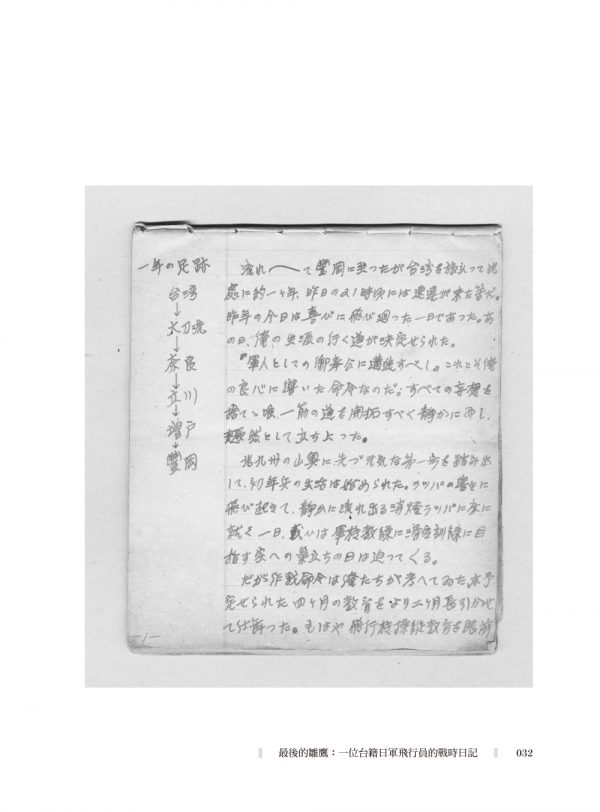 一年の足跡
台湾
↓
大刀洗
↓
奈良
↓
立川
↓
増戸
↓
豐岡
流れ流れて豐岡に至つたが台湾を旅立つて此
處に約一ヶ年、昨日の21時頃には
昨年の今日は喜びに飛び廻つた一日であつた。あ
の日、俺の生涯の行く道が決定せられた。
『軍人としての御奉公に邁進すべし』これこそ俺
の良心に響いた命令なのだ。すべての妄想を
捨てゝ唯一筋の道を開拓すべく静かに而し
然として立ち上つた。
北九州の山奥に先づ元気な第一歩を踏み出
して、幼年兵の生活は始められた。ラッパの響きに
飛び起きて、静かに流れ出る消燈ラッパに床に
就く一日、或ひは軍校教練に滑空訓練に目
指す空への巣立ちの日は迫つてくる。
だが作戦命令は俺たちが考へてゐた、予
定せられた四ヶ月の教育をより二ヶ月長引かせ
て仕舞つた。もはや飛行機操縦教育を眼前
-1-
最後的雛鷹：一位台籍日軍飛行員的戰時日記
032